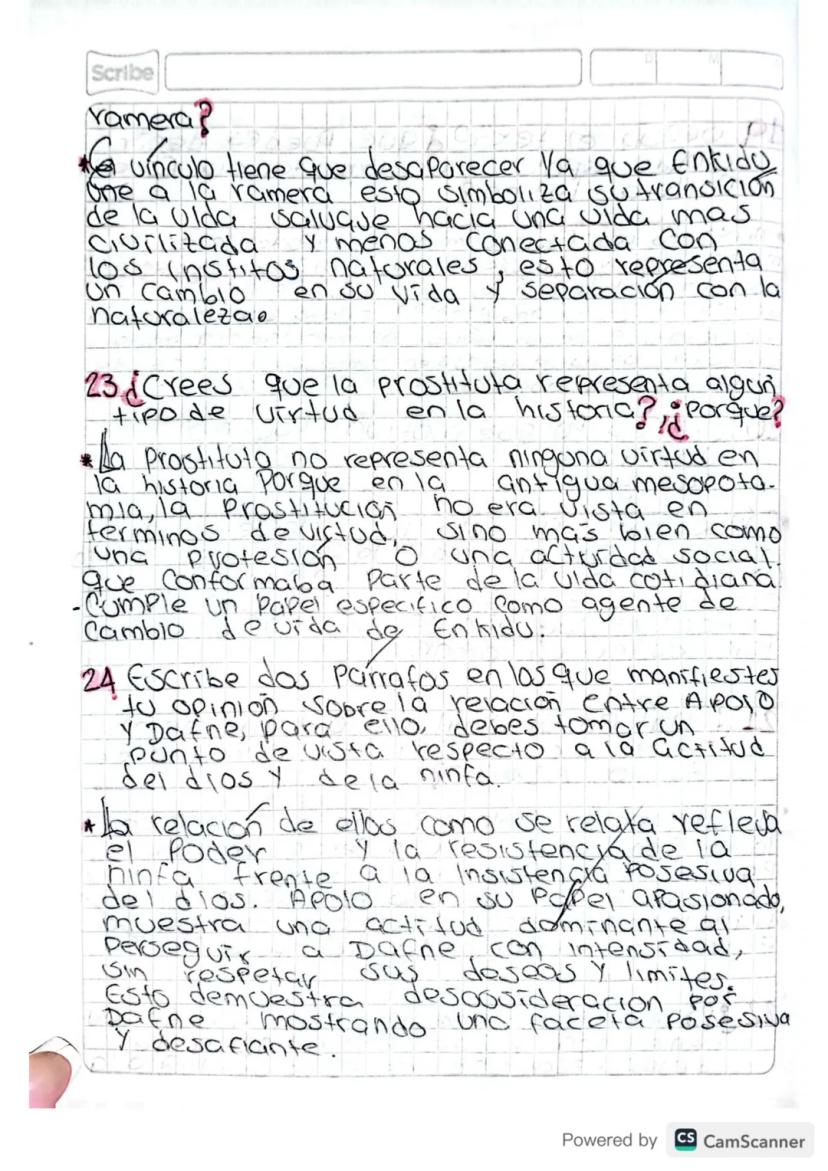 Scribe
ramera?
*El vínculo tiene que desaparecer ya que Enkidu
une a la ramera esto simboliza su transición
de la vida salvaje hacia una vida mas
civilizada y menos conectada con
los institos naturales, esto representa
un cambio en su vida y separación con la
naturaleza.
23 ¿Crees que la prostituta representa algun
tipo de virtud en la historia? ¿Porque?
*La prostituta no representa ninguna virtud en
la historia porque en la antigua mesopota-
mia, la prostitución no era vista en
terminos de virtud, sino más bien como
una profesión o una actividad social
que conformaba parte de la vida cotidiana
-Cumple un papel especifico como agente de
cambio de vida de Enkidu.
24 Escribe dos Párrafos en los que manifiestes
tu opinión sobre la relación entre Apolo
y Dafne, para ello, debes tomar un
punto de vista respecto a la actitud
del dios y de la ninfa.
*La relación de ellos como se relata refleja
el poder y la resistencia de la
ninfa frente a la insistencia posesiva
del dios. Apolo en su papel apasionado,
muestra una actitud dominante al
perseguir a Dafne con intensidad,
sin respetar sus deseos y limites.
Esto demuestra por
Dafne mostrando una faceta posesiva
y desafiante.
Powered by CS CamScanner